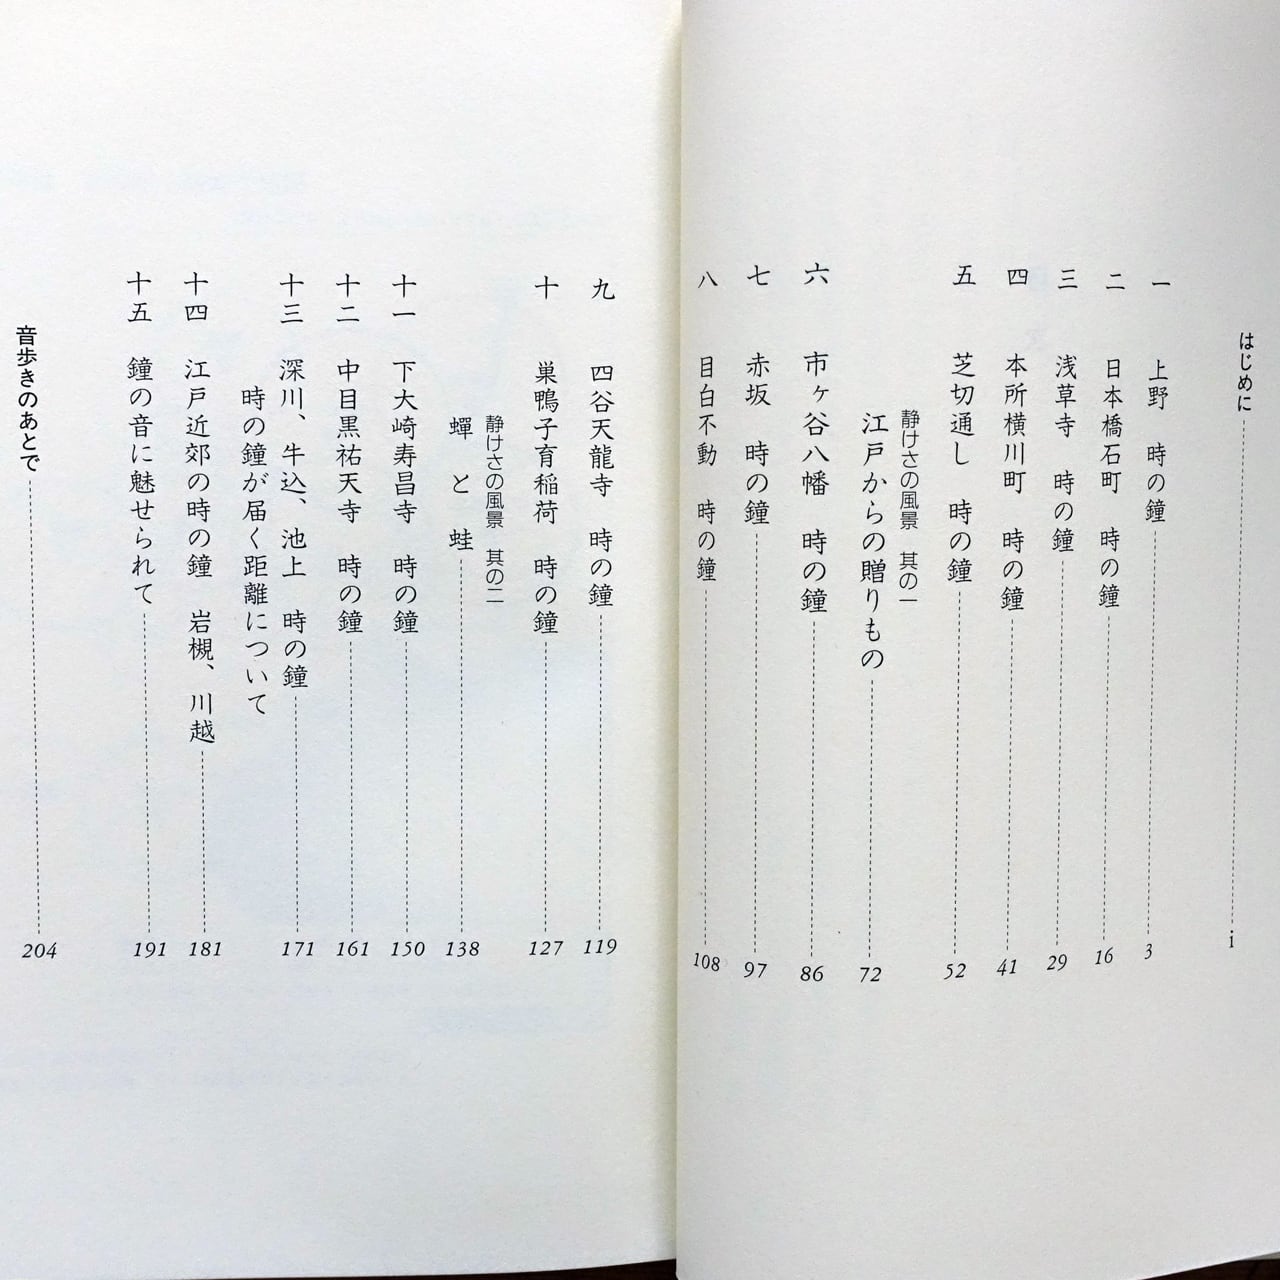 はじめに 1
一 上野 時の鐘 3
二 日本橋石町 時の鐘 16
三 浅草寺 時の鐘 29
四 本所横川町 時の鐘 41
五 芝切通し 時の鐘 52
静けさの風景 其の一
江戸からの贈りもの 72
六 市ヶ谷八幡 時の鐘 86
七 赤坂 時の鐘 97
八 目白不動 時の鐘 108
九 四谷天龍寺 時の鐘 119
十 巣鴨子育稲荷 時の鐘 127
静けさの風景 其の二
蟬と蛙 138
十一 下大崎寿昌寺 時の鐘 150
十二 中目黒祐天寺 時の鐘 161
十三 深川、牛込、池上 時の鐘 171
時の鐘が届く距離について
十四 江戸近郊の時の鐘 岩槻、川越 181
十五 鐘の音に魅せられて 191
音歩きのあとで 204